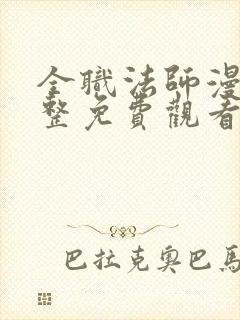 全職法師漫
整免費觀看
巴拉克奧巴馬